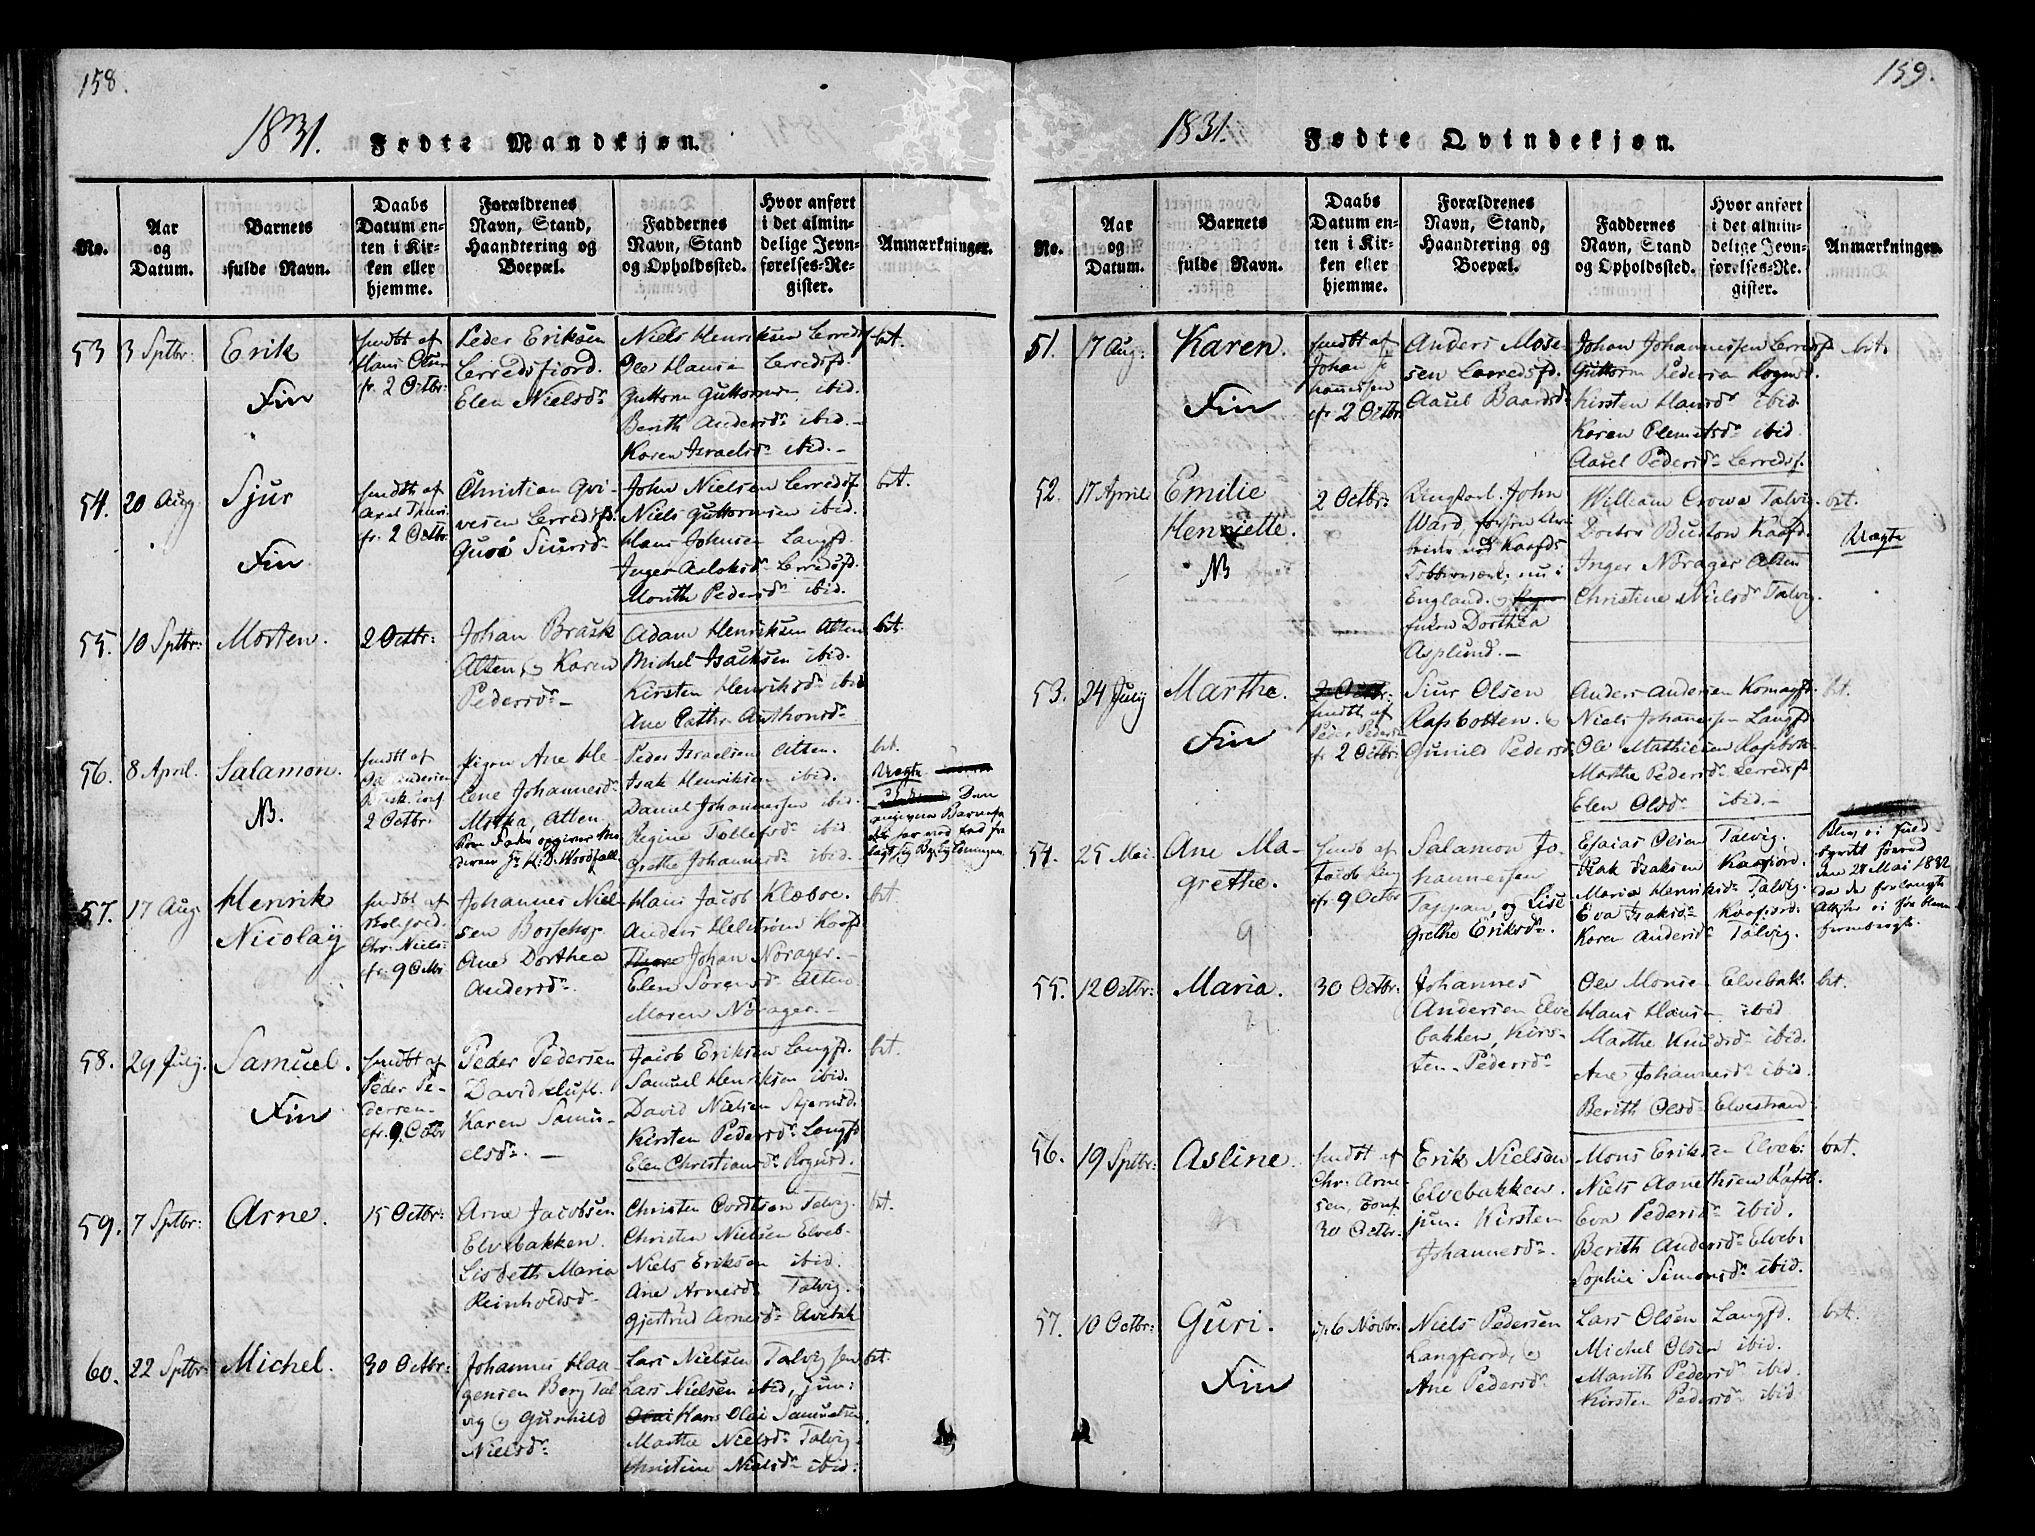 158.
1831. Fødte Mandkjøn.
No.
Aar
og
Datum.
Barnets
fulde Navn.
Daabs
Datum en-
ten i Kir-
ken eller
hjemme.
Forældrenes
Navn, Stand,
Haandtering og
Boepæl.
Faddernes
Navn, Stand
og Opholdssted.
Hvor anført
i det almin-
delige Jevn-
førelses-Re-
gister.
Anmærkninger.
53 3 Sptbr: Erik
Fin
hmdbt af
Hans Olsen
fr. 2 Octbr:
Peder Eriksen
Lerredsfiord.
Elen Nielsdr
Niels Henriksen Lerredsf
Ole Hansen Lerredsf.
Guttorm Guttormsen ibid.
Berith Andersdr ibid.
Karen Israelsdr ibid.
brt.
54. 20 Aug: Sjur
Fin
hmdbt af
fr. 2 Octbr.
Christian Qvi-
vesen Lerredsfd.
Guro Siursdr
John Nielsen Lerredsf
Niels Guttormsen ibid.
Hans Johnsen Langfd.
Inger Aslaksdr Lerredsfd.
Marith Pedersdr ibid.
brt.
55. 10 Sptbr: Morten.
2 Octbr:
Johan Brask
Alten, og Karen
Pedersdr
Adam Henriksen Alten
Michel Isacksen ibid.
Kirsten Henriksdr ibid
Ane Cathr. Anthonsdr
brt.
56. 8 April. Salamon.
NB.
hmdbt af
2 Octbr.
Pigen Ane He
lene Johannesdr
Alten,
Peder Israelsen Alten.
Isak Henriksen ibid.
Daniel Johannessen ibid.
Regine Tollefsdr ibid
Grethe Johannesdr ibid.
brt.
Uægte
57. 17 Aug: Henrik
Nicolaij
hmdbt af
Chr. Niels-
fr. 9 Octbr
Johannes Niel-
sen Bossekop.
Ane Dorthea
Andersdr
Hans Jacob Klæboe.
Anders Helstrøm Kaafd
Johan Norager.
Elen Sørensdr Alten
Maren Norager.
brt.
58. 29 July. Samuel.
Fin
hmdbt af
Peder Pe-
dersen
fr. 9 Octbr
Peder Pedersen
Davidsluft.
Karen Samu-
elsdr.
Jacob Eriksen Langfd.
Samuel Henriksen ibid.
David Nielsen Stjernsd.
Kirsten Pedersdr Langfd
Elen Christiansdr Rognsd.
brt.
59. 7 Sptbr: Arne.
15 Octbr:
Arne Jacobsen
Elvebakken.
Lisbeth Maria
Reinholdsdr
Christen Cordtsen Talvig.
Christen Nielsen Elveb.
Niels Eriksen ibid.
Ane Arnesdr Talvig.
Gjertrud Arnesdr Elvebak
brt.
60. 22 Sptbr: Michel.
30 Octbr:
Johannes Haa
gensen Berg Tal
vig og Gunhild
Nielsdr
Lars Nielsen Talvig sen
Lars Nielsen ibid, jun:
Hans Olai Samuelsen.
Marthe Nielsdr Talvig
Christine Nielsdr ibid:
brt.
159.
1831. Fødte Qvindekjøn.
No.
Aar
og
Datum.
Barnets
fulde Navn.
Daabs
Datum en-
ten i Kir-
ken eller
hjemme.
Forældrenes
Navn, Stand,
Haandtering og
Boepæl.
Faddernes
Navn, Stand
og Opholdssted.
Hvor anført
i det almin-
delige Jevn-
førelses-Re-
gister.
Anmærkninger.
51. 17 Aug: Karen.
Fin
hmdbt af
Johan Jo
hannessen
fr 2 Octbr.
Anders Mose-
sen Lerredsfd.
Aasel Baardsdr
Johan Johannessen Lerredsf.
Guttorm Pedersen Rognsd.
Kirsten Hansdr ibid
Karen Clemetsdr ibid.
Aasel Pedersdr Lerredsf.
brt.
52. 17 April Emilie
Henriette.
NB
2 Octbr:
Ungkarl John
Ward,
England.
Dorthea
Asplund.
William Crowe Talvig.
Doctor Buxton Kaafd.
Inger Norager Alten
Christine Nielsdr Talvig.
brt.
Uægte
53. 24 July Marthe.
Fin
hmdbt af
Peder Peders
fr 2 Octbr:
Siur Olsen
Rafsbotten. og
Gunild Pedersdr
Anders Andersen Komagfd.
Niels Johannessen Langfd
Ole Mathiesen Rafsbotn
Marthe Pedersdr Lerredsf
Elen Olsdr ibid.
brt.
54. 25 Mai. Ane Ma-
grethe.
hmdb af
fr 9 Octbr
Salamon Jo-
hannessen
Tappan, og Lise
Grethe Eriksdr.
Esaias Olsen Talvig.
Isak Isaksen Kaafiord.
Maria Henriksdr Talvig.
Eva Isaksdr Kaafiord.
Karen Andersdr Talvig.
den 28 Mai 1832
55. 12 Octbr: Maria.
30 Octbr:
Johannes
Andersen Elve
bakken, Kirs-
ten Pedersdr
Ole Monsen Elvebak.
Hans Hansen ibid
Marthe Knudsdr ibid.
Ane Johannesdr ibid.
Berith Olsdr Elvestrand
brt.
56. 19 Sptbr: Asline.
hmdbt af
Chr: Arne-
sen, conf.
30 Octbr:
Erik Nielsen
Elvebakken.
jun: Kirsten
Johannesdr.
Mons Eriksen Elveb:
Niels Agnethsen Kafd.
Eva Pedersdr ibid.
Berith Andersdr Elveb:
Sophie Simonsdr ibid.
brt.
57. 10 Octbr: Guri.
Fin
6 Novbr:
Niels Pedersen
Langfiord, og
Ane Pedersdr
Lars Olsen Langfd.
Michel Olsen ibid.
Marith Pedersdr ibid.
Kirsten Pedersdr ibid.
brt.